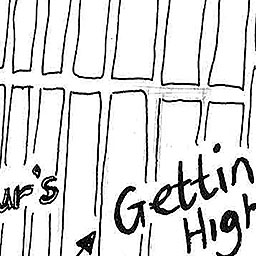 ur's
Gettin
High